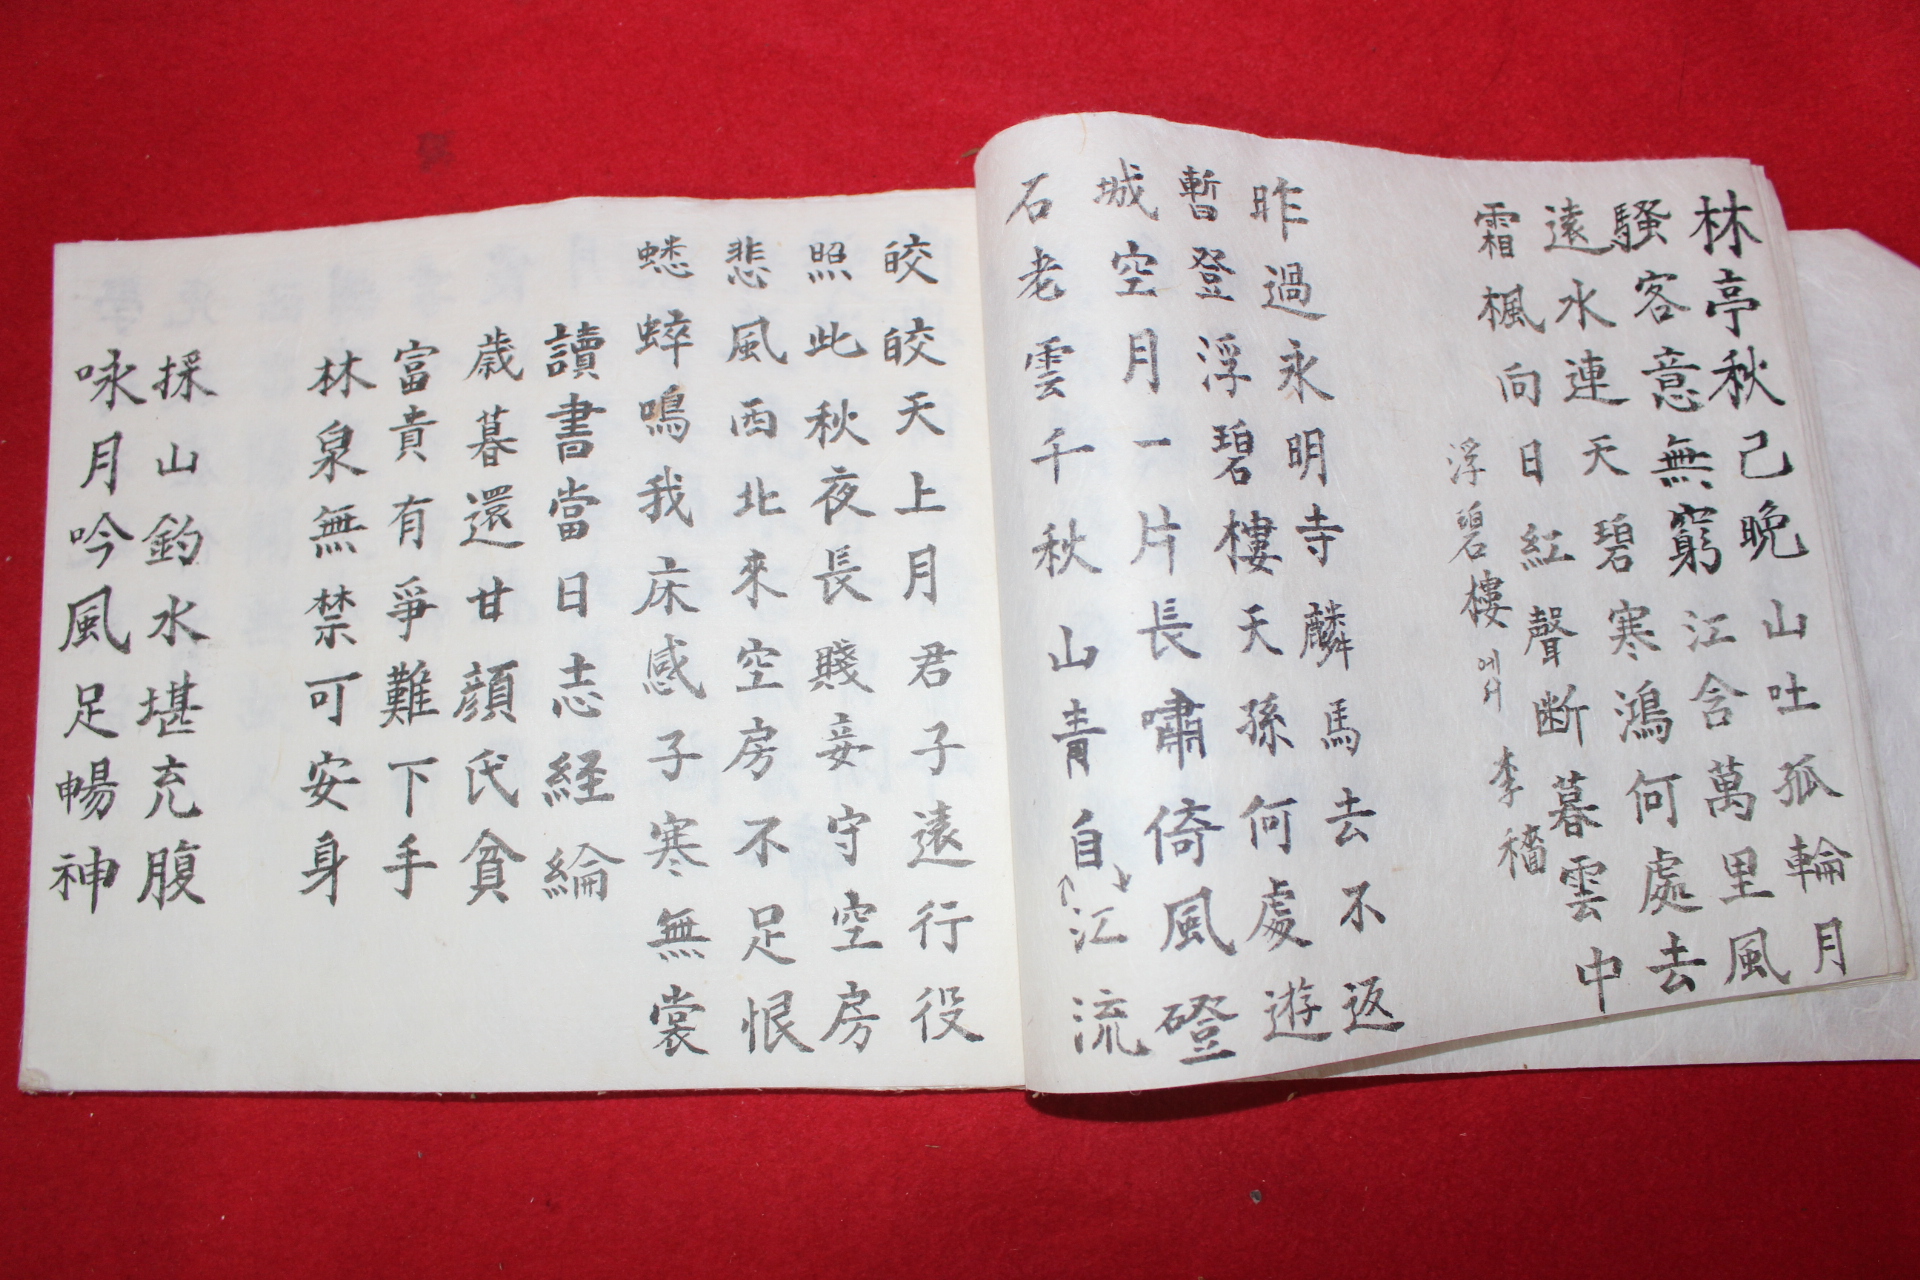 林亭秋己晩山吐孤輪月
騷客意無窮江含萬里風
遠水連天碧寒鴻何處去
霜楓向日紅聲断暮雲中
浮碧樓에서 李穡
昨過永明寺麟馬去不返
暫登浮碧樓天孫何處遊
城空月一片長嘯倚風磴
石老雲千秋山青自江流
皎皎天上月君子遠行役
照此秋夜長賤妾守空房
悲風西北來空房不足恨
蟋蟀鳴我床感子寒無裳
讀書當日志経綸
歲暮還甘顔氏貧
富貴有爭難下手
林泉無禁可安身
採山釣水堪充腹
咏月吟風足暢神